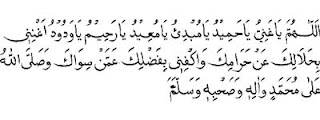 اَللّٰهُمَّ يَاغَنِيُّ يَاحَمِيْدُ يَامُبْدِئُ يَامُعِيْدُ يَارَحِيْمُ يَاوَدُوْدُ اَغْنِنِيْ
بِحَلَالِكَ عَنْ حَرَامِكَ وَاكْفِنِيْ بِفَضْلِكَ عَمَّنْ سِوَاكَ وَصَلَّى اللّٰهُ
عَلٰى مُحَمَّدٍ وَاٰلِهٖ وَصَحْبِهٖ وَسَلَّمَ